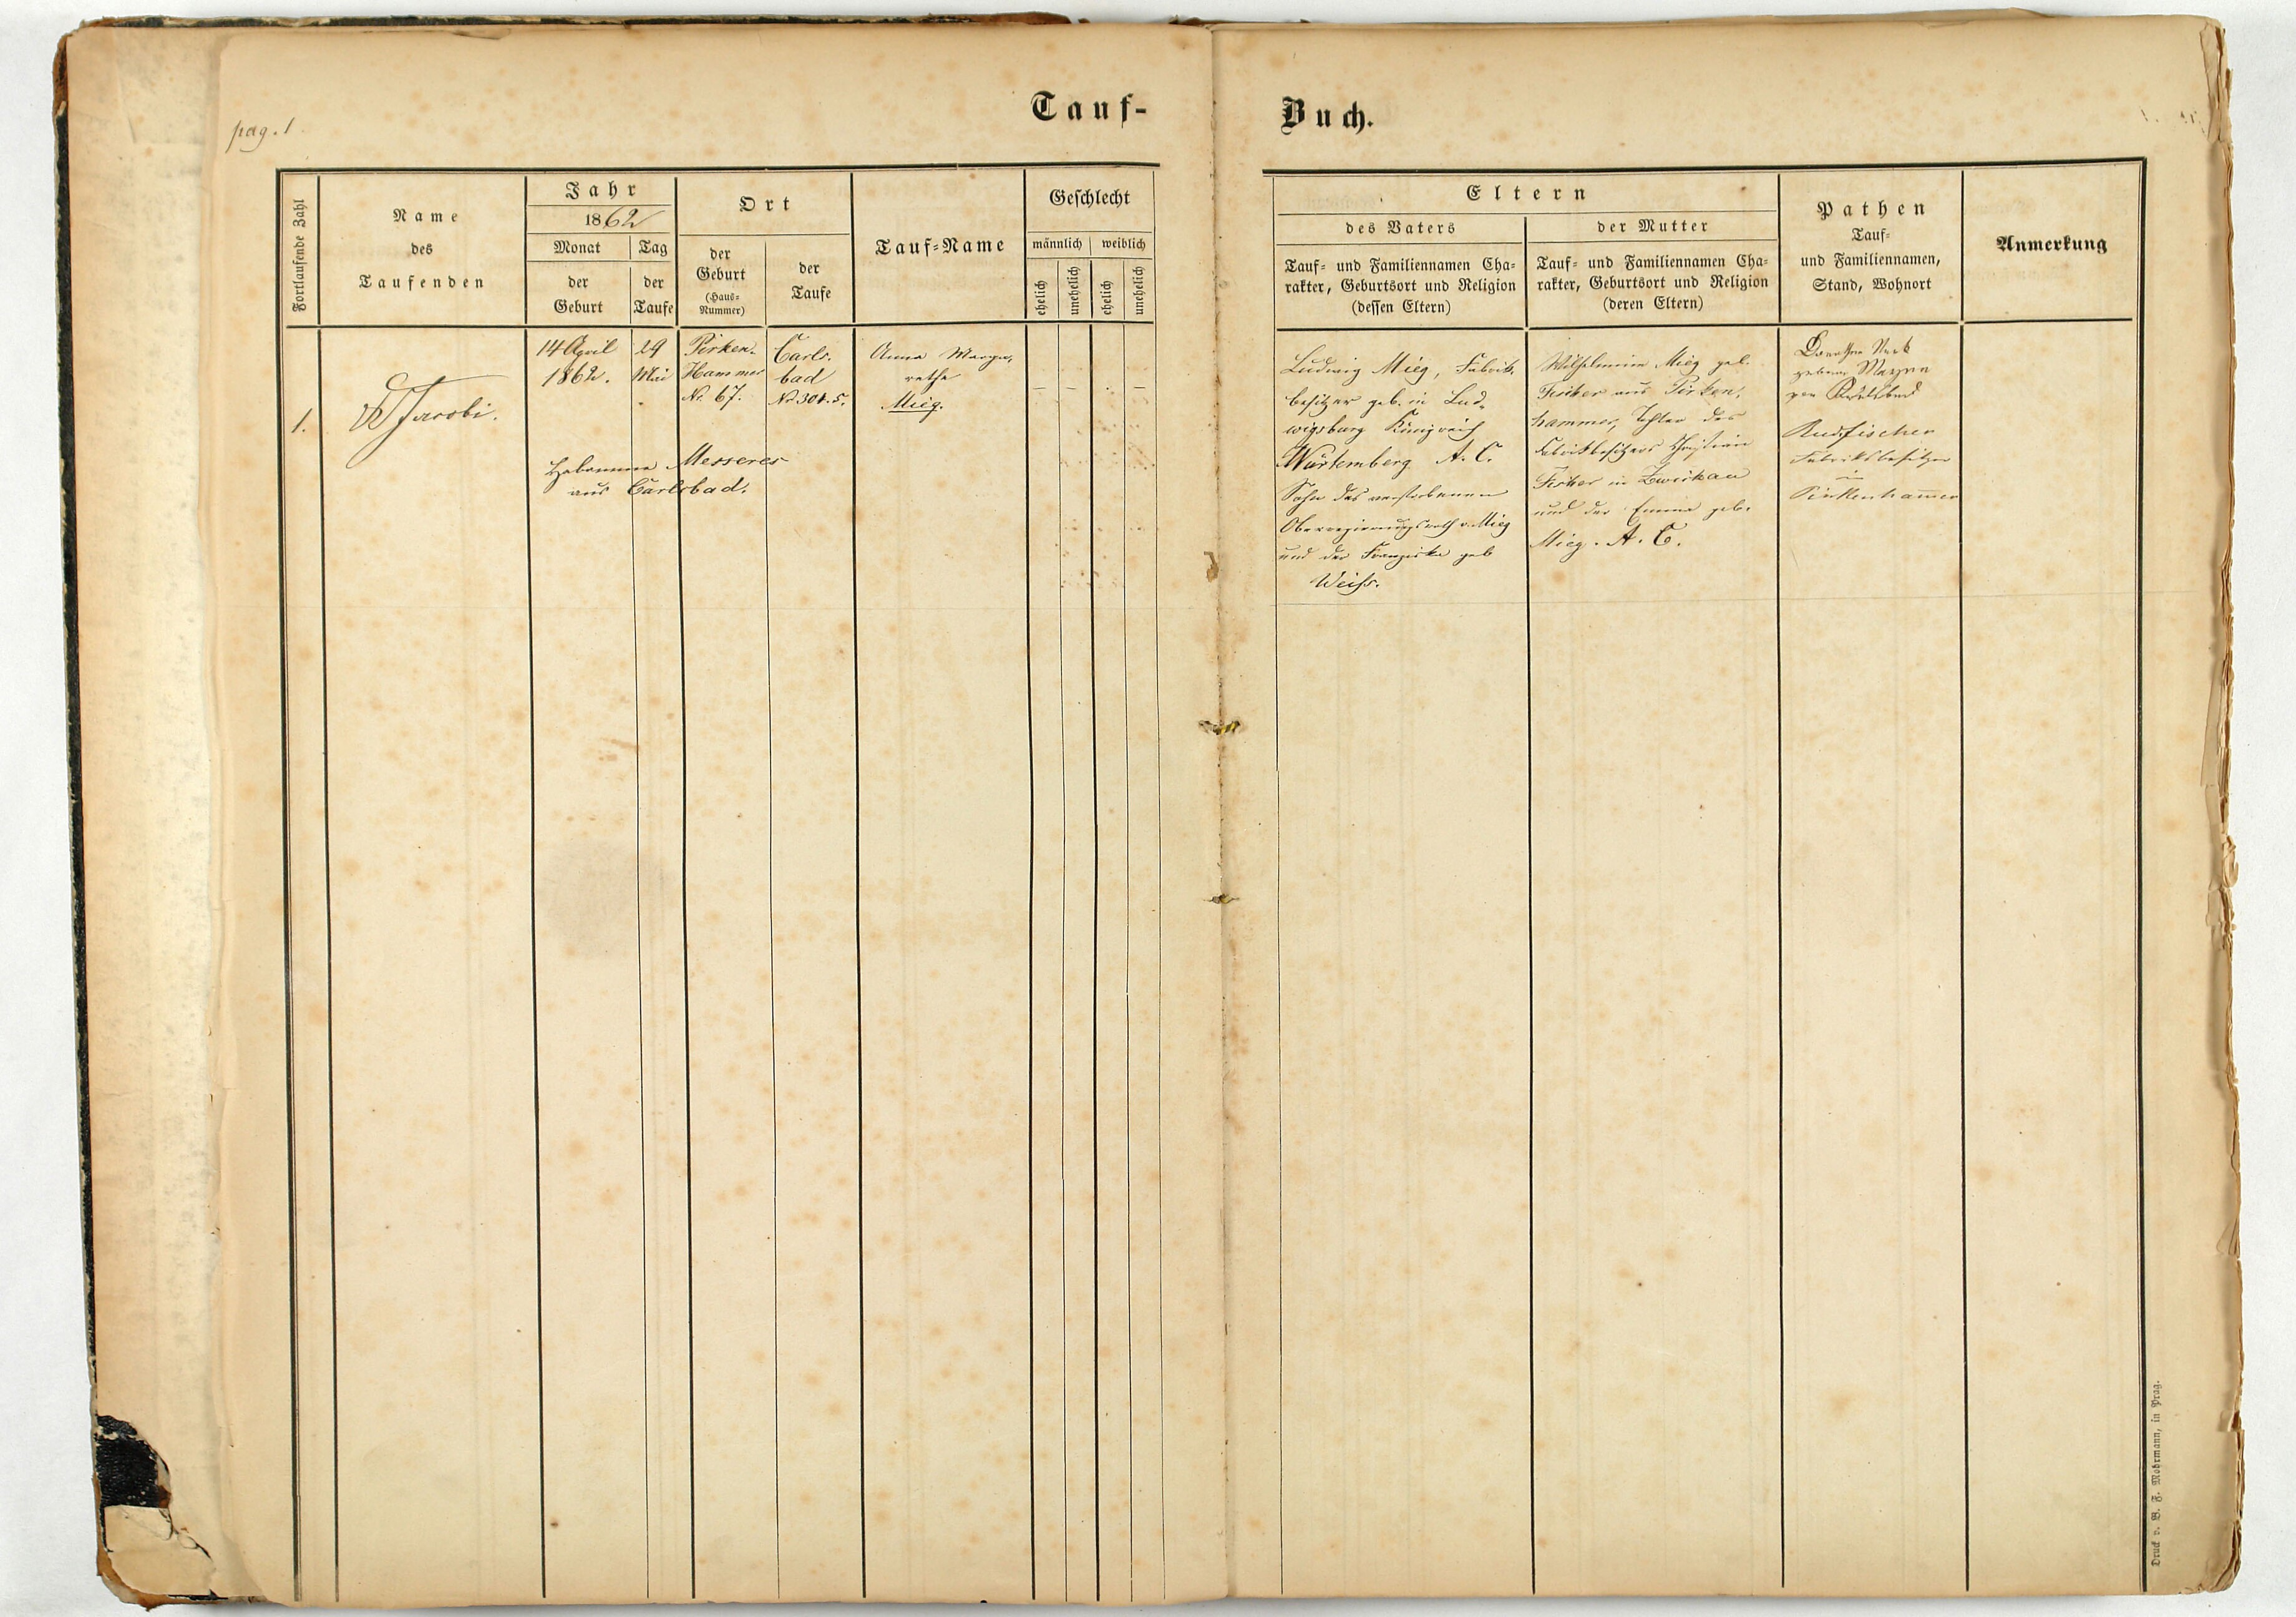 pag. 1
Tauf-
Buch.
Fortlaufende Zahl
Name
des
Taufenden
Jahr
1862
Monat
der
Geburt
Tag
der
Taufe
Ort
der
Geburt
(Haus-
Nummer)
der
Taufe
Tauf-Name
Geschlecht
männlich
weiblich
ehelich
unehelich
ehelich
unehelich
Eltern
des Vaters
Tauf- und Familiennamen Cha-
rakter, Geburtsort und Religion
(dessen Eltern)
der Mutter
Tauf- und Familiennamen Cha-
rakter, Geburtsort und Religion
(deren Eltern)
Pathen
Tauf-
und Familiennamen,
Stand, Wohnort
Anmerkung
1.
Jacobi.
14 April
1862.
29
Mai
Pirken-
Hammer
No. 67.
Carls-
bad
Hebamme Messerer
aus Carlsbad.
Anna Marga-
rethe
Mieg.
Ludwig Mieg, Fabrik-
besitzer geb. in Lud-
wigsburg Königreich
Würtemberg A. C.
Sohn des verstorbenen
Oberregierungsrath v. Mieg
und der Franziska geb
Weiss.
Wilhelmine Mieg geb.
Fischer aus Pirken-
hammer, Tochter des
Fabrikbesitzers Christian
Fischer in Zwickau
und der Emma geb.
Mieg. A. C.
Dorothea
geborne
Rud. Fischer
Fabriksbesitzer
in
Pirkenhammer
Druck v. B. F. Mohrmann, in Prag.